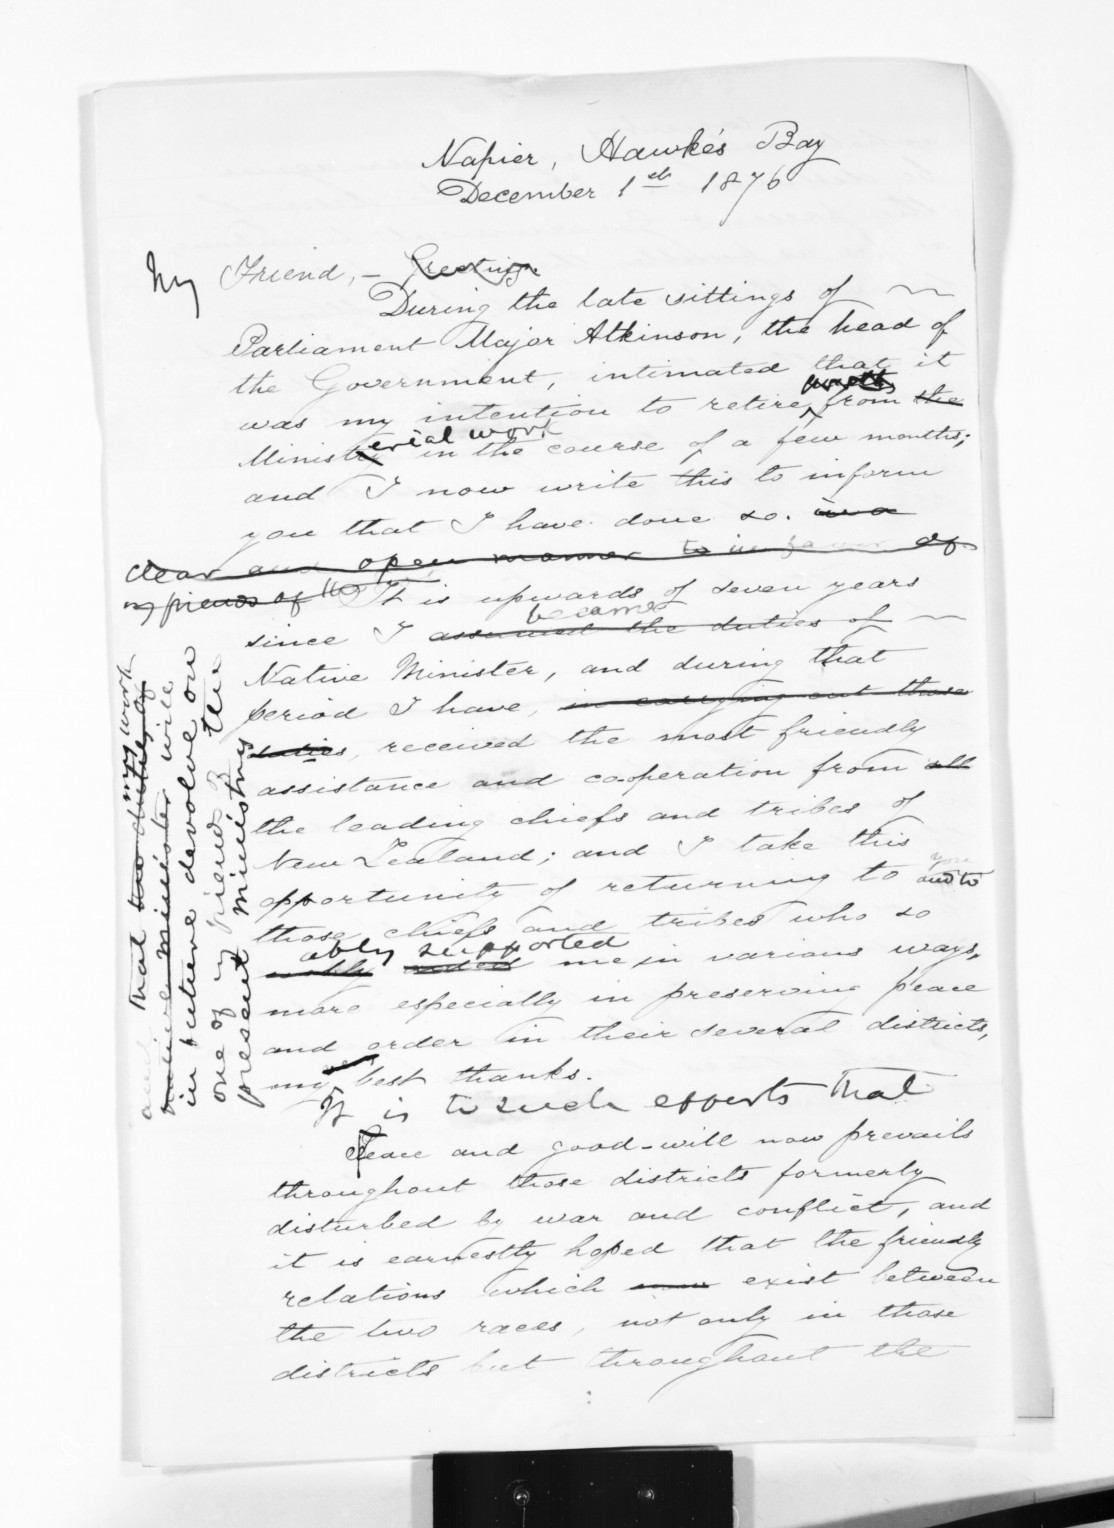 Napier, Hawke's Bay
December 1st 1876
My Friend, — Greeting
During the late sittings of
Parliament Major Atkinson, the head of
the Government, intimated that it
was my intention to retire from the
Ministry erial work in the course of a few months;
and I now write this to inform
you that I have done so. in a
clear and open manner to in favor of
my friends of the It is upwards of seven years
became
since I assumed the duties of
Native Minister, and during that
period I have, in carrying out those
duties, received the most friendly
assistance and cooperation from all
the leading chiefs and tribes of
New Zealand; and I take this
opportunity of returning to you and to
those chiefs and tribes who so
ably supported
nobly aided me in various ways,
more especially in preserving peace
and order in their several districts,
my very best thanks.
It is to such efforts that
Peace and good-will now prevails
throughout those districts formerly
disturbed by war and conflict, and
it is earnestly hoped that the friendly
relations which now exist between
the two races, not only in those
districts but throughout the
my work
and that the duties of
native minister will
in future devolve on
one of my friends of the
present ministry